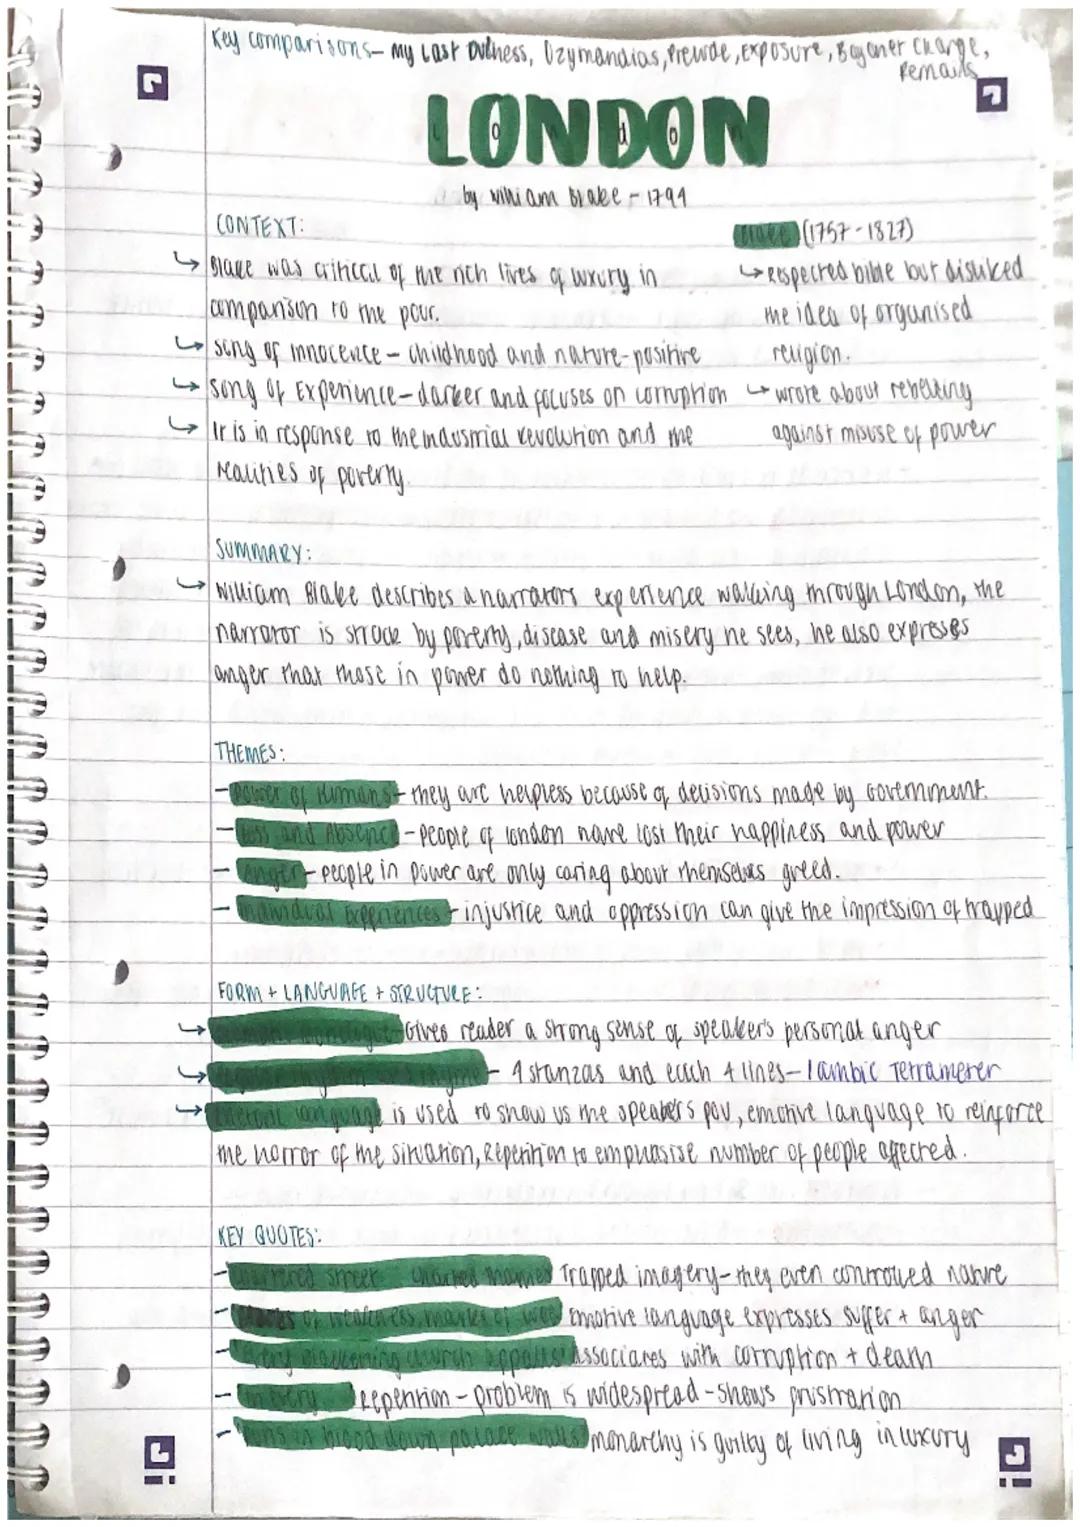 Key comparisons- My Last Duchess, Ozymandias, Prelude, Exposure, Bayonet Charge,
Remains
LONDON
London
by William Blake - 1794
CONTEXT:
Blake (1757-1827)
↳ Blake was critical of the rich lives of luxury in
↳ respected bible but disliked
comparison to the pour.
the idea of organised
↳ song of innocence - childhood and nature-positive
religion.
↳ song of Experience-darker and focuses on corruption
↳ wrote about rebelling
↳ It is in response to the industrial revolution and the
against misuse of power
realities of poverty.
SUMMARY:
↳ William Blake describes a narrators experience walking through London, the
narrator is struck by poverty, disease and misery he sees, he also expresses
anger that those in power do nothing to help.
THEMES:
- Power of Humans - they are helpless because of decisions made by Government.
- Loss and Absence - people of london have lost their happiness and power
- Anger - people in power are only caring about themselves greed.
- Individual Experiences - injustice and oppression can give the impression of trapped
FORM + LANGUAGE + STRUCTURE:
↳ Gives reader a strong sense of speaker's personal anger
↳ rhyme - 4 stanzas and each 4 lines - Iambic Tetrameter
↳ language is used to show us the speakers pov, emotive language to reinforce
the horror of the situation, Repetition to emphasise number of people affected.
KEY QUOTES:
- street charted Trapped imagery - they even controlled nature
- Marks of weakness, marks of woe Emotive language expresses suffer + anger
- Every blackening church appalls Associates with corruption + death
- In every Repetition - problem is widespread - shows frustration
- Runs in blood down palace walls monarchy is guilty of living in luxury